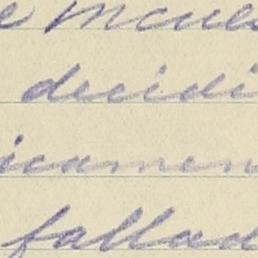 e mcues
decidi
icamen
fallad